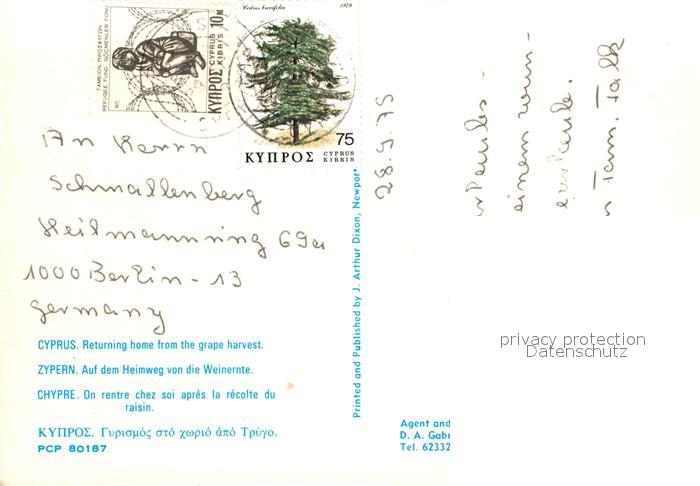 Cedrus brevifolia 1979
ΤΑΜΕΙΟΝ ΠΡΟΣΦΥΓΩΝ
REFUGEE FUND GÖÇMENLER FONU
1977
ΚΥΠΡΟΣ CYPRUS KIBRIS 10M
75
ΚΥΠΡΟΣ CYPRUS
KIBRIS
An Herrn
Schmallenberg
Heilmannring 69a
1000 Berlin - 13
Germany
CYPRUS. Returning home from the grape harvest.
ZYPERN. Auf dem Heimweg von die Weinernte.
CHYPRE. On rentre chez soi après la récolte du
raisin.
ΚΥΠΡΟΣ. Γυρισμός στό χωριό ἀπό Τρύγο.
PCP 80187
Printed and Published by J. Arthur Dixon, Newport
28.9.79
einem
Fam. Falk
privacy protection
Datenschutz
Agent and
D. A. Gabr
Tel. 62332